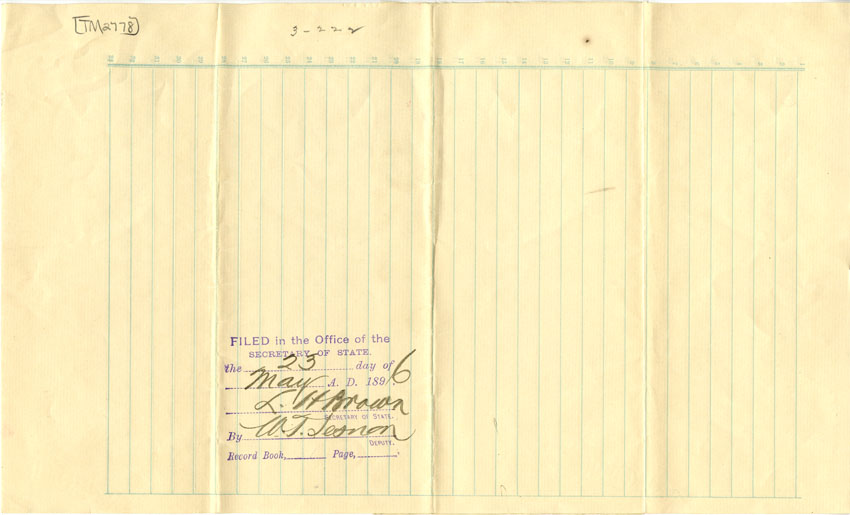 [TM2778]
3-222
FILED in the Office of the
SECRETARY OF STATE.
the 23 day of
May A. D. 1896
L. H Brown
SECRETARY OF STATE.
By W. T.
DEPUTY.
Record Book, Page,